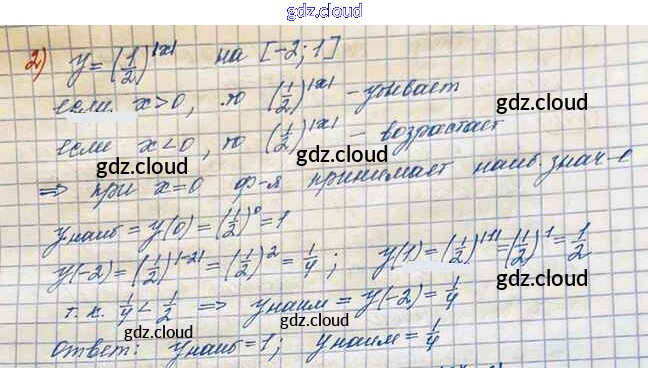 gdz.cloud
2) y=(1/2)^|x| на [-2;1]
если x>0, то (1/2)^|x| - убывает
gdz.cloud
если x<0, то (1/2)^|x| - возрастает
gdz.cloud gdz.cloud
⇒ при x=0 ф-я принимает наиб. знач-е
gdz.cloud
yнаиб = y(0) = (1/2)^0 = 1
y(-2) = (1/2)^|-2| = (1/2)^2 = 1/4; y(1) = (1/2)^|1| = (1/2)^1 = 1/2
gdz.cloud
т.к. 1/4 < 1/2 ⇒ yнаим = y(-2) = 1/4
gdz.cloud
Ответ: yнаиб = 1; yнаим = 1/4
gdz.cloud